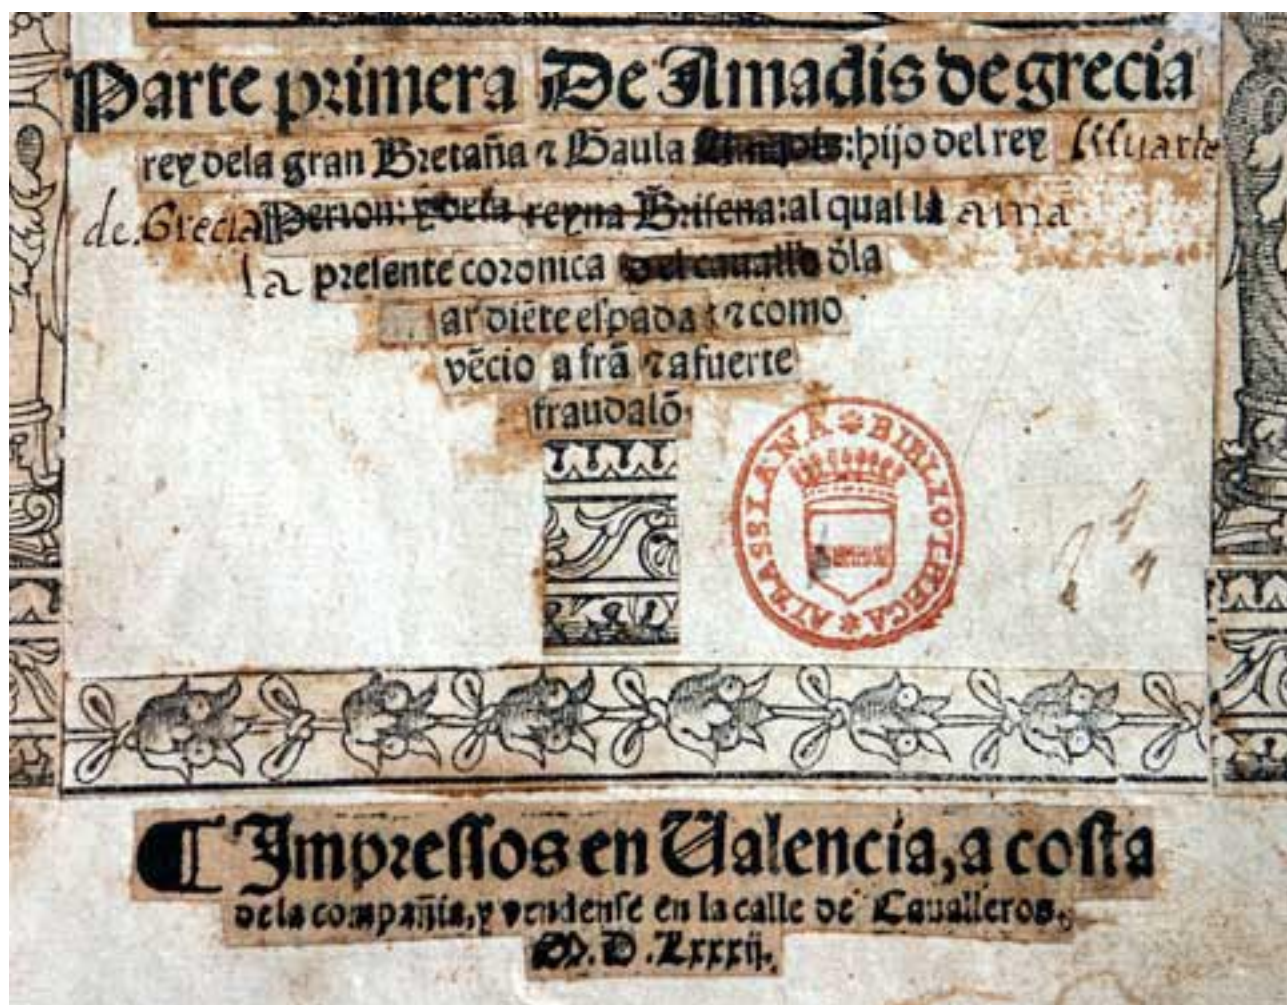 Parte primera De Amadis de grecia
rey dela gran Bretaña ⁊ Gaula : hijo del rey lisuarte
de. Grecia Perion: y dela reyna Brisena: al qual lla ama
la presente coronica del cauallo d̄la
ardiẽte espada ⁊ como
vẽcio a frã ⁊ a fuerte
fraudalõ.
BIBLIOTHECA ALBASSLANA
¶ Impressos en Ualencia, a costa
dela compañia, y vendense en la calle de Caualleros.
M.D.Lxxxij.